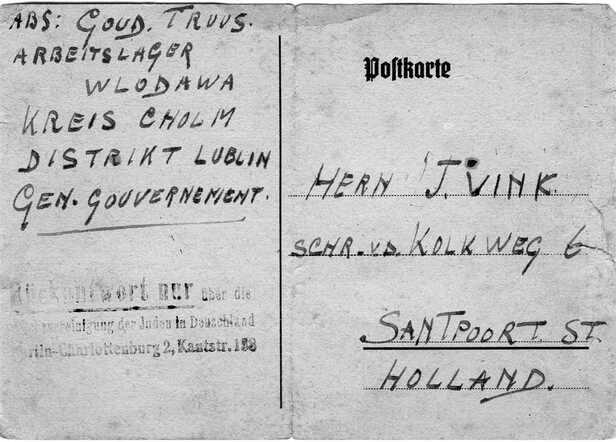 ABS: GOUD. TRUUS.
ARBEITSLAGER
WLODAWA
KREIS CHOLM
DISTRIKT LUBLIN
GEN. GOUVERNEMENT.
Rückantwort nur über die
der Juden in Deutschland
Berlin-Charlottenburg 2, Kantstr. 158
Postkarte
HERN J. VINK.
SCHR. V.D. KOLKWEG 6
SANTPOORT ST.
HOLLAND.